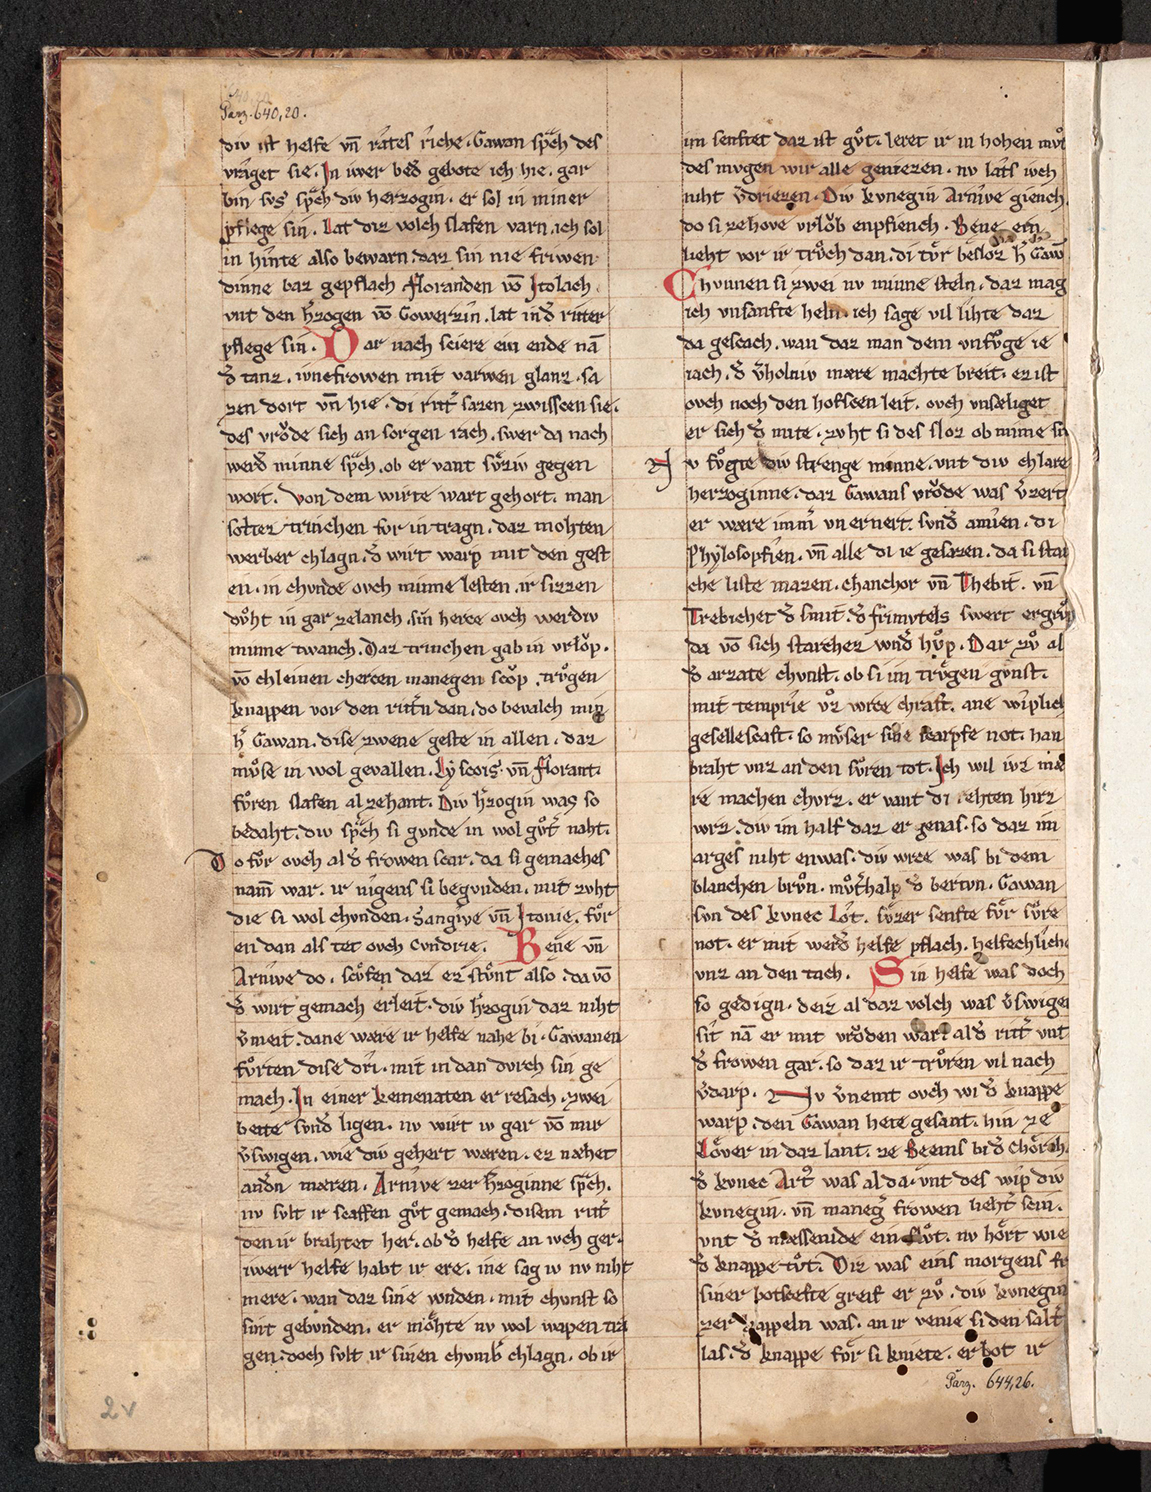 Parz. 640,20.
div ist helfe vn̄ rates riche. Gawan sp̄ch des
vraget sie. In iwer bed̄ gebote ich hie. gar
bin svs sp̄ch div herzogin. er sol in miner
pflege sin. Lat diz volch slafen varn. ich sol
in hinte also bewarn. daz sin nie friwen
dinne baz gepflach. floranden vō Itolach.
vnt den h̄zogen vō Gowerzin. lat ind̄ ritter
pflege sin. Dar nach sciere ein ende nā
d̄ tanz. ivncfrowen mit varwen glanz. sa
zen dort vn̄ hie. di ritt̄ sazen zwisscen sie.
des vrǒde sich an sorgen rach. swer da nach
werd̄ minne sp̄ch. ob er vant sv̊ziv gegen
wort. Von dem wirte wart gehort. man
soltez trinchen fvr in tragn. daz mohten
werber chlagn. d̄ wirt warp mit den gest
en. in chvnde ovch minne lesten. ir sizzen
dv̊ht in gar zelanch. sin herce ovch werdiv
minne twanch. Daz trinchen gab in vrlǒp.
vō chleinen chercen manegen scǒp. trv̊gen
knappen vor den ritt̄n dan. do bevalch min
h̄ Gawan. dise zwene geste in allen. daz
mv̊se in wol gevallen. Lyscois. vn̄ florant.
fv̊ren slafen al zehant. Div h̄zogin was so
bedaht. div sp̄ch si gvnde in wol gv̊t̄ naht.
Do fv̊r ovch al d̄ frowen scar. da si gemaches
nam̄ war. ir nigens si begvnden. mit zvht
die si wol chvnden. Sangive vn̄ Itonie. fv̊r
en dan als tet ovch Cvndrie. Bene vn̄
Arnive do. scv̊fen daz ez stv̊nt also. da vō
d̄ wirt gemach erleit. div h̄zogin daz niht
v̄meit. dane wære ir helfe nahe bi. Gawanen
fv̊rten dise dri. mit in dan dvrch sin ge
mach. In einer kemenaten er resach. zwei
bette svnd̄ ligen. nv wirt iv gar vō mir
v̄swigen. wie div gehert wæren. ez næhet
and̄n mæren. Arnive zer h̄zoginne sp̄ch.
nv svlt ir scaffen gv̊t gemach. disem ritt̄
den ir brahtet her. ob d̄ helfe an iwch ger.
iwerr helfe habt ir ere. ine sag iv nv niht
mere. wan daz sine wnden. mit chvnst so
sint gebvnden. er mohte nv wol wapen tra
gen. doch svlt ir sinen chvmb̄ chlagn. ob ir
im senftet daz ist gv̊t. leret ir in hohen mv̊t
des mvgen wir alle geniezen. nv lats iwch
niht v̄driezen. Div kvnegin Arnive giench.
do si ze hove vrlǒb enpfiench. Bene ein
lieht vor ir trv̊ch dan. di tv̊r besloz h̄ Gaw̄
Chvnnen si zwei nv minne steln. daz mag
ich vnsanfte heln. ich sage vil lihte daz
da gescach. wan daz man dem vnfv̊ge ie
iach. d̄ v̄holniv mære machte breit. ez ist
ovch noch den hofscen leit. ovch vnsæliget
er sich d̄ mite. zvht si des sloz ob minne sit
Nv fv̊gte div strenge minne. vnt div chlare
herzoginne. daz Gawans vrǒde was v̄zert
er wære imm̄ vnernert. svnd̄ amien. di
Phylosopfien. vn̄ alle di ie gesazen. da si star
che liste mazen. chanchor vn̄ Thebit. vn̄
Trebuchet d̄ smit. d̄ frimvtels swert ergrv̊p
da vō sich starchez wnd̄ hv̊p. Dar zv̊ al
d̄ arzate chvnst. ob si im trv̊gen gvnst.
mit temprie vz wrce chraft. ane wiplich
gesellescaft. so mv̊ser sine scarpfe not. han
braht vnz an den sv̊ren tot. Ich wil ivz mæ
re machen chvrz. er vant di rehten hirz
wrz. div im half daz er genas. so daz im
arges niht enwas. div wrce was bi dem
blanchen brvn. mv̊t̄halp d̄ bertvn. Gawan
svn des kvnec Lot. sv̊zer senfte fv̊r sv̊re
not. er mit werd̄ helfe pflach. helfechliche
vnz an den tach. Sin helfe was doch
so gedign. deiz al daz volch was v̄swigen
sit nā er mit vrǒden war. al d̄ ritt̄ vnt
d̄ frowen gar. so daz ir trv̊ren vil nach
v̄darp. Nv v̄nemt ovch wi d̄ knappe
warp. den Gawan hete gesant. hin ze
Lǒver in daz lant. ze Beems bi d̄ Chorcha.
d̄ kvnec Art̄ was al da. vnt des wip div
kvnegin. vn̄ maneḡ frowen lieht̄ scin.
vnt d̄ mæssenide ein flv̊t. nv hört wie
d̄ knappe tv̊t. Diz was eins morgens fr
siner botscefte greif er zv̊. div kvnegin
zer kappeln was. an ir venie si den salt̄
las. d̄ knappe fv̊r si kniete. er bot ir
Parz. 644,26.
2v